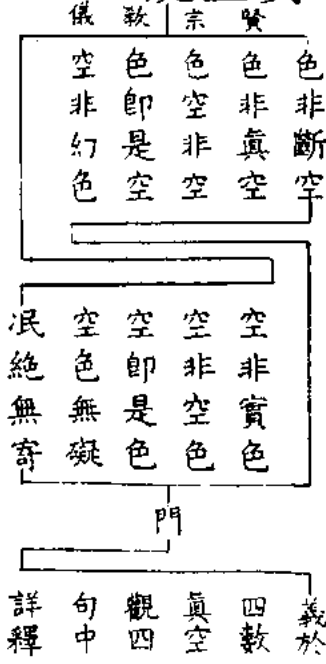 賢
宗
教
儀
色非斷空
色非眞空
色空非空
色即是空
空非幻色
空非實色
空非空色
空即是色
空色無礙
泯絶無寄
門
義於
四數
眞空
觀四
句中
詳釋